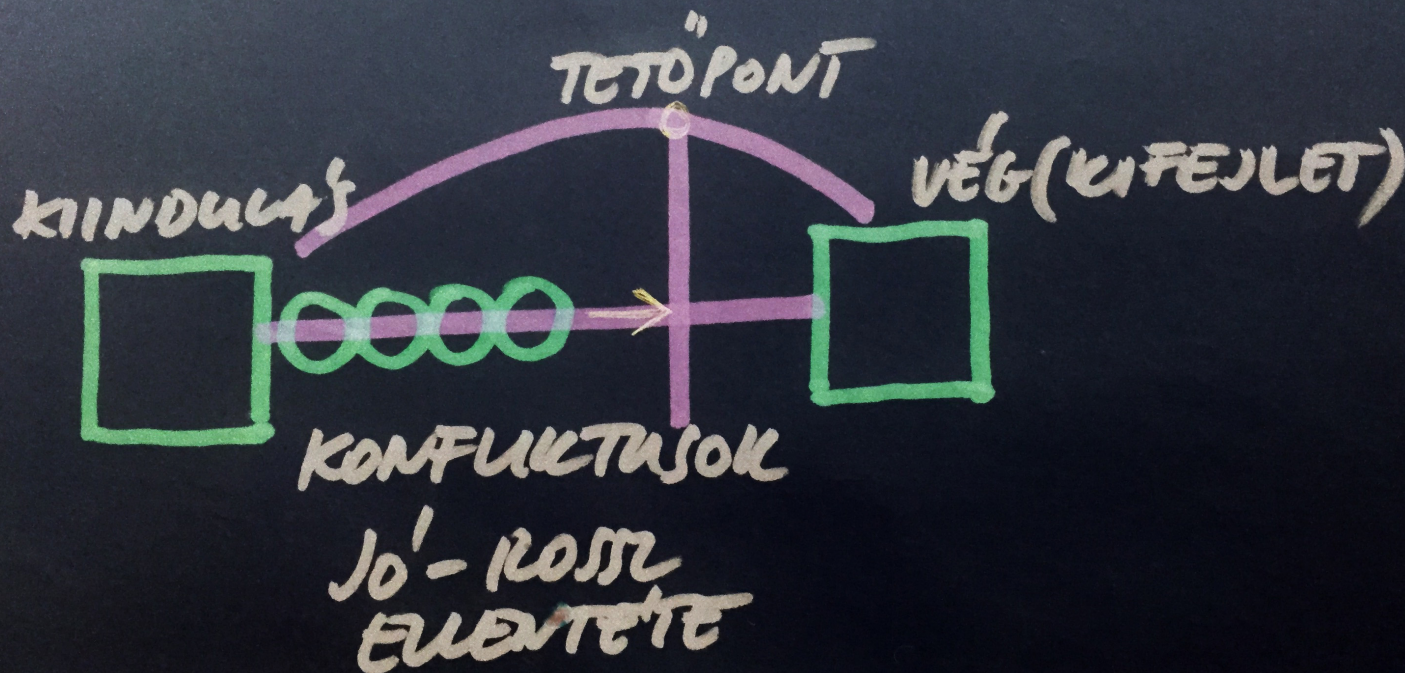 TETŐPONT
KIINDULÁS
VÉG (KIFEJLET)
KONFLIKTUSOK
JÓ - ROSSZ
ELLENTÉTE